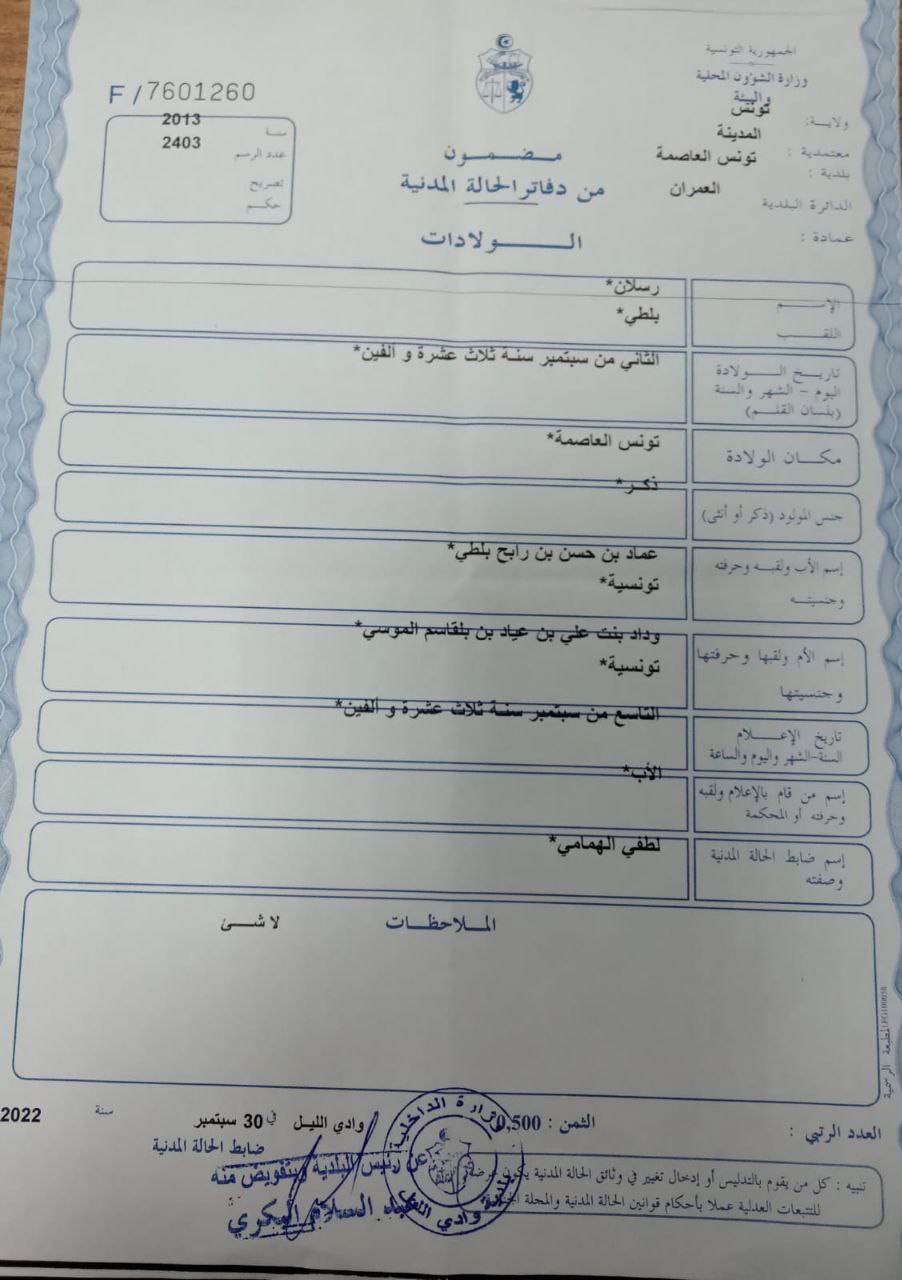 الجمهورية التونسية
وزارة الشؤون المحلية
والبيئة
ولاية: تونس
معتمدية : المدينة
بلدية : تونس العاصمة
الدائرة البلدية العمران
عمادة :
F / 7601260
سنة 2013
عدد الرسم 2403
تصريح
حكم
مضمون
من دفاتر الحالة المدنية
الولادات
الإسم رسلان*
اللقب بلطي*
تاريخ الولادة
اليوم - الشهر والسنة
(بلسان القلم)
الثاني من سبتمبر سنة ثلاث عشرة و ألفين*
مكان الولادة تونس العاصمة*
جنس المولود (ذكر أو أنثى) ذكر*
إسم الأب ولقبه وحرفته
وجنسيته
عماد بن حسن بن رابح بلطي*
تونسية*
إسم الأم ولقبها وحرفتها
وجنسيتها
وداد بنت علي بن عياد بن بلقاسم الموسي*
تونسية*
تاريخ الإعلام
السنة-الشهر واليوم والساعة
التاسع من سبتمبر سنة ثلاث عشرة و ألفين*
إسم من قام بالإعلام ولقبه
وحرفته أو المحكمة
الأب*
إسم ضابط الحالة المدنية
وصفته
لطفي الهمامي*
الملاحظات لا شئ
المطبعة الرسمية
العدد الرتبي : الثمن : 0,500 وادي الليل في 30 سبتمبر سنة 2022
ضابط الحالة المدنية
عن رئيس البلدية وبتفويض منه
عبد السلام البكري
وزارة الداخلية
بلدية وادي الليل
تنبيه : كل من يقوم بالتدليس أو إدخال تغيير في وثائق الحالة المدنية يكون عرضة
للتتبعات العدلية عملا بأحكام قوانين الحالة المدنية والمجلة